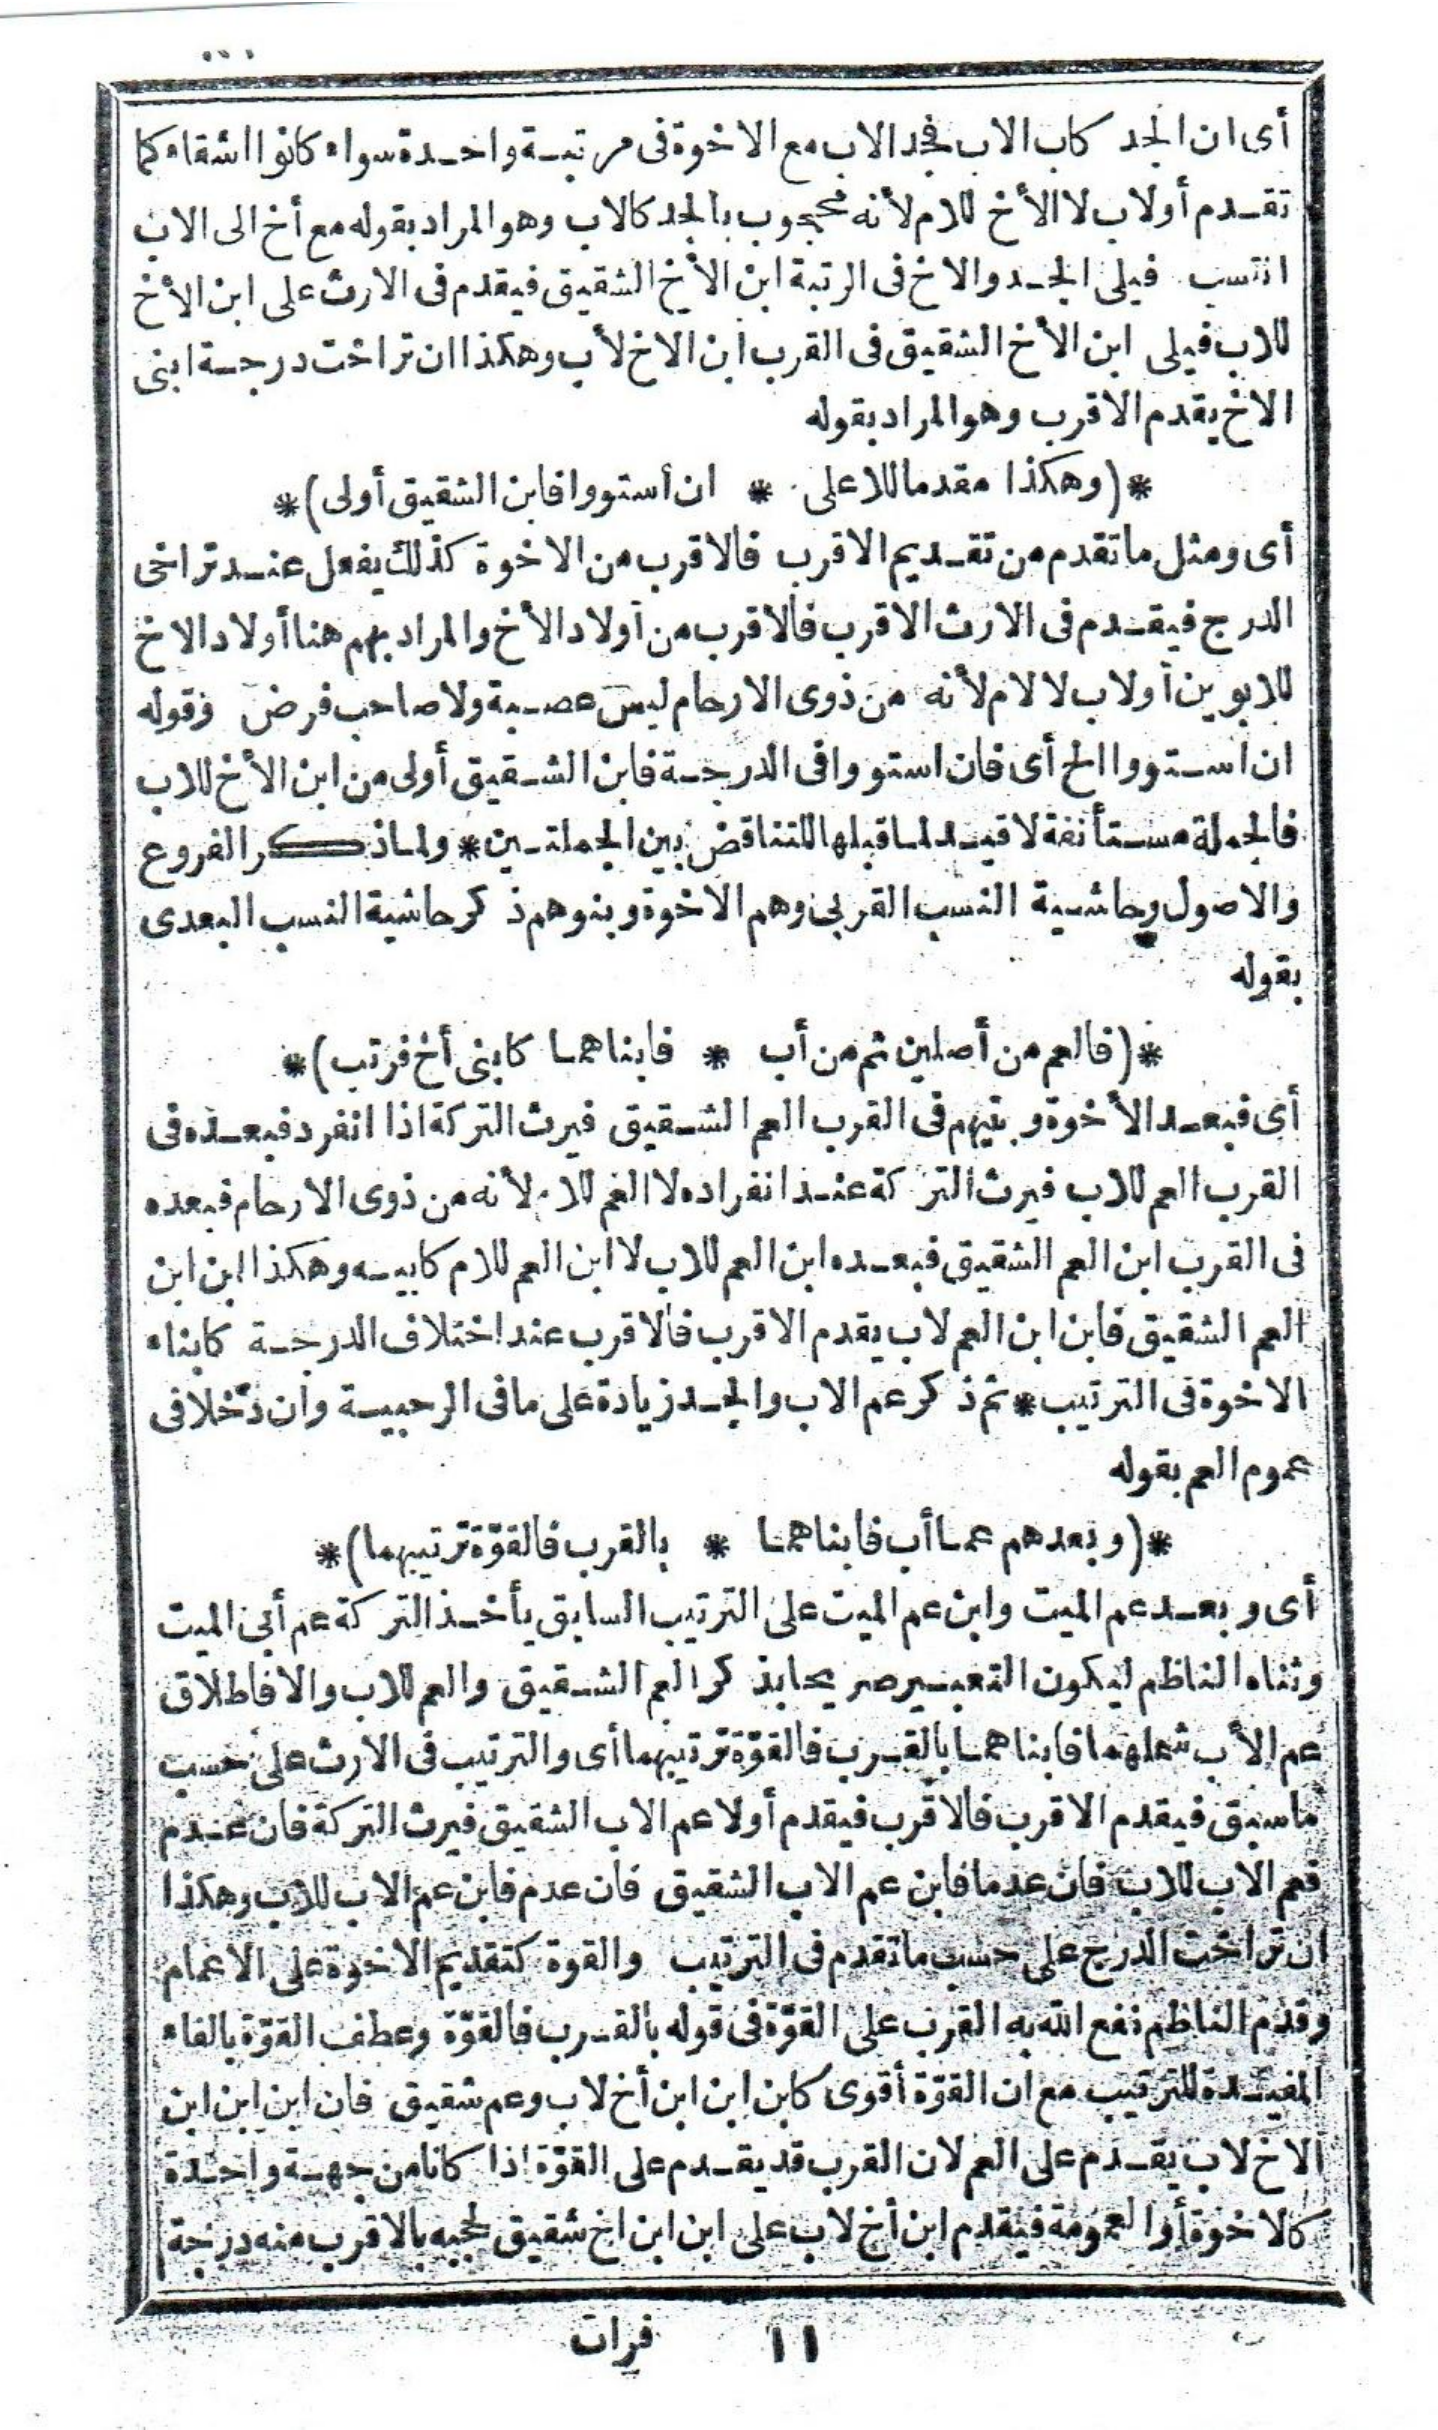 أى ان الجد كاب الاب فجد الاب مع الاخوة فى مرتبة واحدة سواء كانوا اشقاء كما
تقدم أولاب لا الأخ للام لأنه محجوب بالجد كالاب وهو المراد بقوله مع أخ الى الاب
انتسب فيلى الجد والاخ فى الرتبة ابن الأخ الشقيق فيقدم فى الارث على ابن الأخ
للاب فيلى ابن الأخ الشقيق فى القرب ابن الاخ لأب وهكذا ان تراخت درجة ابنى
الاخ يقدم الاقرب وهو المراد بقوله
*(وهكذا مقدما للاعلى * ان استووا فابن الشقيق أولى)*
أى ومثل ما تقدم من تقديم الاقرب فالاقرب من الاخوة كذلك يفعل عند تراخى
الدرج فيقدم فى الارث الاقرب فالاقرب من أولاد الأخ والمراد بهم هنا أولاد الاخ
للابوين أولاب لا لام لأنه من ذوى الارحام ليس عصبة ولا صاحب فرض وقوله
ان استووا الخ أى فان استووا فى الدرجة فابن الشقيق أولى من ابن الأخ للاب
فالجملة مستأنفة لا قيد لما قبلها للتناقض بين الجملتين * ولما ذكر الفروع
والاصول وحاشية النسب القربى وهم الاخوة وبنوهم ذكر حاشية النسب البعدى
بقوله
*(فالعم من أصلين ثم من أب * فابناهما كابنى أخ فرتب)*
أى فبعد الأخوة وبنيهم فى القرب العم الشقيق فيرث التركة اذا انفرد فبعده فى
القرب العم للاب فيرث التركة عند انفراده لا العم للام لأنه من ذوى الارحام فبعده
فى القرب ابن العم الشقيق فبعده ابن العم للاب لا ابن العم للام كابيه وهكذا ابن ابن
العم الشقيق فابن ابن العم لاب يقدم الاقرب فالاقرب عند اختلاف الدرجة كابناء
الاخوة فى الترتيب * ثم ذكر عم الاب والجد زيادة على ما فى الرحبية وان دخلا فى
عموم العم بقوله
*(وبعدهم عما أب فابناهما * بالقرب فالقوّة ترتيبهما)*
أى وبعد عم الميت وابن عم الميت على الترتيب السابق يأخذ التركة عم أبى الميت
وثناه الناظم ليكون التعبير صريحا بذكر العم الشقيق والعم للاب والا فاطلاق
عم الأب شملهما فابناهما بالقرب فالقوّة ترتيبهما أى والترتيب فى الارث على حسب
ما سبق فيقدم الاقرب فالاقرب فيقدم أولا عم الاب الشقيق فيرث التركة فان عدم
فعم الاب للاب فان عدما فابن عم الاب الشقيق فان عدم فابن عم الاب للاب وهكذا
ان تراخت الدرج على حسب ما تقدم فى الترتيب والقوة كتقديم الاخوة على الاعمام
وقدم الناظم نفع الله به القرب على القوّة فى قوله بالقرب فالقوّة وعطف القوّة بالفاء
المفيدة للترتيب مع ان القوّة أقوى كابن ابن ابن أخ لاب وعم شقيق فان ابن ابن ابن
الاخ لاب يقدم على العم لان القرب قد يقدم على القوّة اذا كانا من جهة واحدة
كالاخوة أو العمومة فيقدم ابن أخ لاب على ابن ابن اخ شقيق لحجبه بالاقرب منه درجة
١١ فرات